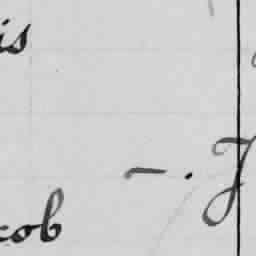 is
-. J
cob